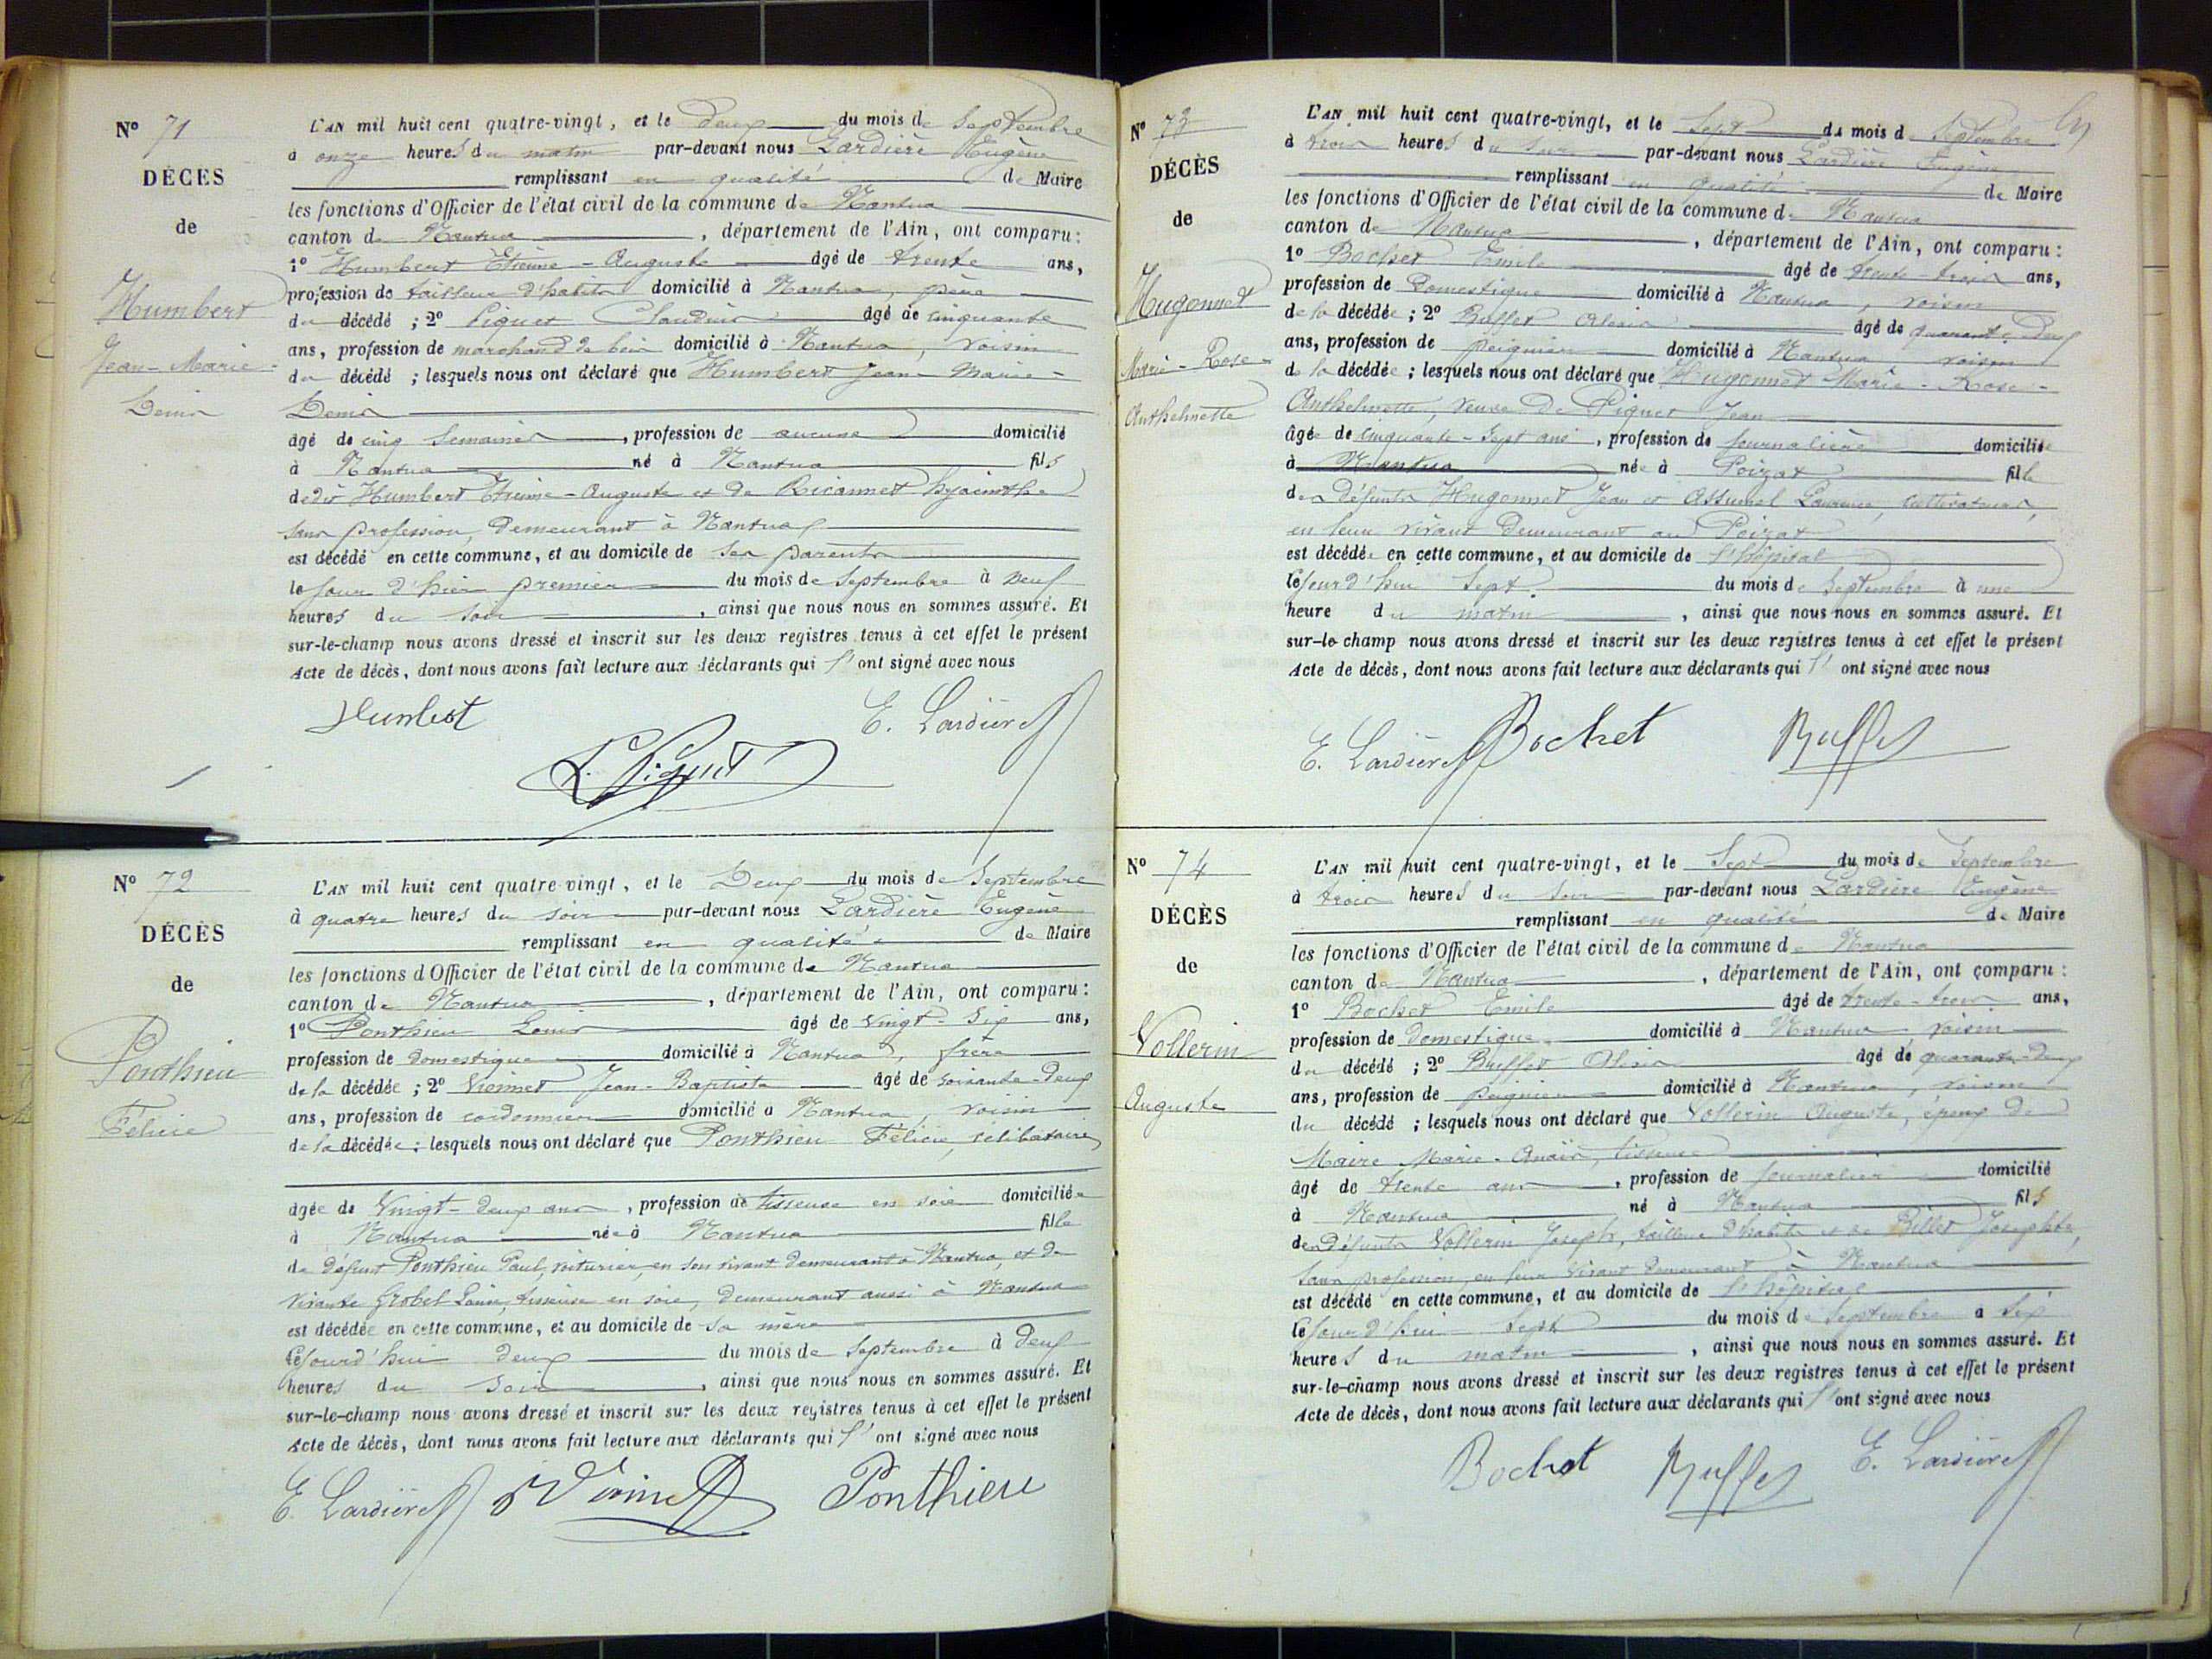 N° 71
DÉCÈS
de
Humbert
Jean-Marie-
Denis
L'AN mil huit cent quatre-vingt, et le Deux du mois de Septembre
à onze heures du matin par-devant nous Lardière Eugène
remplissant en qualité de Maire
les fonctions d'Officier de l'état civil de la commune de Nantua
canton de Nantua, département de l'Ain, ont comparu :
1° Humbert Etienne-Auguste âgé de trente ans,
profession de tailleur d'habits domicilié à Nantua, père
du décédé ; 2° Piquet Claudius âgé de cinquante
ans, profession de marchand de bois domicilié à Nantua, voisin
du décédé ; lesquels nous ont déclaré que Humbert Jean-Marie-
Denis
âgé de cinq semaines, profession de aucune domicilié
à Nantua né à Nantua fils
de dit Humbert Etienne-Auguste et de Ricannet hyacinthe
sans profession, demeurant à Nantua
est décédé en cette commune, et au domicile de ses parents
le jour d'hier premier du mois de Septembre à neuf
heures du soir, ainsi que nous nous en sommes assuré. Et
sur-le-champ nous avons dressé et inscrit sur les deux registres tenus à cet effet le présent
Acte de décès, dont nous avons fait lecture aux déclarants qui l' ont signé avec nous
Humbert E. Lardière
Piquet
N° 72
DÉCÈS
de
Ponthieu
Félicie
L'AN mil huit cent quatre-vingt, et le Deux du mois de Septembre
à quatre heures du soir par-devant nous Lardière Eugène
remplissant en qualité de Maire
les fonctions d'Officier de l'état civil de la commune de Nantua
canton de Nantua, département de l'Ain, ont comparu :
1° Ponthieu Louis âgé de vingt-six ans,
profession de domestique domicilié à Nantua, frère
de la décédée ; 2° Viennet Jean-Baptiste âgé de soixante-deux
ans, profession de cordonnier domicilié à Nantua, voisin
de la décédée ; lesquels nous ont déclaré que Ponthieu Félicie, célibataire
âgée de Vingt-deux ans, profession de tisseuse en soie domiciliée
à Nantua née à Nantua fille
de défunt Ponthieu Paul, voiturier, en son vivant demeurant à Nantua, et de
vivante Grobel Louise, tisseuse en soie, demeurant aussi à Nantua
est décédée en cette commune, et au domicile de sa mère
cejourd'hui deux du mois de Septembre à deux
heures du soir, ainsi que nous nous en sommes assuré. Et
sur-le-champ nous avons dressé et inscrit sur les deux registres tenus à cet effet le présent
Acte de décès, dont nous avons fait lecture aux déclarants qui l' ont signé avec nous
E. Lardière Viennet Ponthieu
N° 73
DÉCÈS
de
Hugonnet
Marie-Rose-
Anthelmette
L'AN mil huit cent quatre-vingt, et le Sept du mois de Septembre
à trois heures du soir par-devant nous Lardière Eugène
remplissant en qualité de Maire
les fonctions d'Officier de l'état civil de la commune de Nantua
canton de Nantua, département de l'Ain, ont comparu :
1° Bochet Emile âgé de trente-trois ans,
profession de Domestique domicilié à Nantua, voisin
de la décédée ; 2° Buffet Alexis âgé de quarante-deux
ans, profession de peignier domicilié à Nantua voisin
de la décédée ; lesquels nous ont déclaré que Hugonnet Marie-Rose-
Anthelmette, veuve de Piquet Jean
âgée de cinquante-sept ans, profession de journalière domiciliée
à Nantua née à Poizat fille
des défunts Hugonnet Jean et Assumel Laurence, cultivateurs,
en leur vivant demeurant au Poizat
est décédée en cette commune, et au domicile de l'hôpital
cejourd'hui Sept du mois de Septembre à une
heure du matin, ainsi que nous nous en sommes assuré. Et
sur-le-champ nous avons dressé et inscrit sur les deux registres tenus à cet effet le présent
Acte de décès, dont nous avons fait lecture aux déclarants qui l' ont signé avec nous
E. Lardière Bochet Buffet
N° 74
DÉCÈS
de
Vollerin
Auguste
L'AN mil huit cent quatre-vingt, et le Sept du mois de Septembre
à trois heures du soir par-devant nous Lardière Eugène
remplissant en qualité de Maire
les fonctions d'Officier de l'état civil de la commune de Nantua
canton de Nantua, département de l'Ain, ont comparu :
1° Bochet Emile âgé de trente-trois ans,
profession de domestique domicilié à Nantua voisin
du décédé ; 2° Buffet Alexis âgé de quarante-deux
ans, profession de peignier domicilié à Nantua, voisin
du décédé ; lesquels nous ont déclaré que Vollerin Auguste, époux de
Maire Marie-Anaïs, tisseuse
âgé de trente ans, profession de journalier domicilié
à Nantua né à Nantua fils
des défunts Vollerin Joseph, tailleur d'habits et de Billet Josephte,
sans profession, en leur vivant demeurant à Nantua
est décédé en cette commune, et au domicile de l'hôpital
cejourd'hui Sept du mois de Septembre à six
heures du matin, ainsi que nous nous en sommes assuré. Et
sur-le-champ nous avons dressé et inscrit sur les deux registres tenus à cet effet le présent
Acte de décès, dont nous avons fait lecture aux déclarants qui l' ont signé avec nous
Bochet Buffet E. Lardière